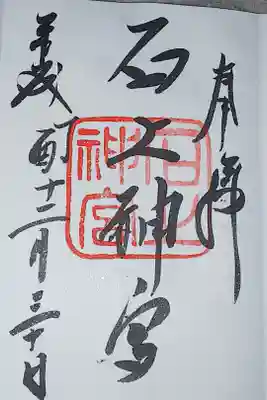 奉拝
石上神宮
石上神宮
平成丁酉十二月三十日